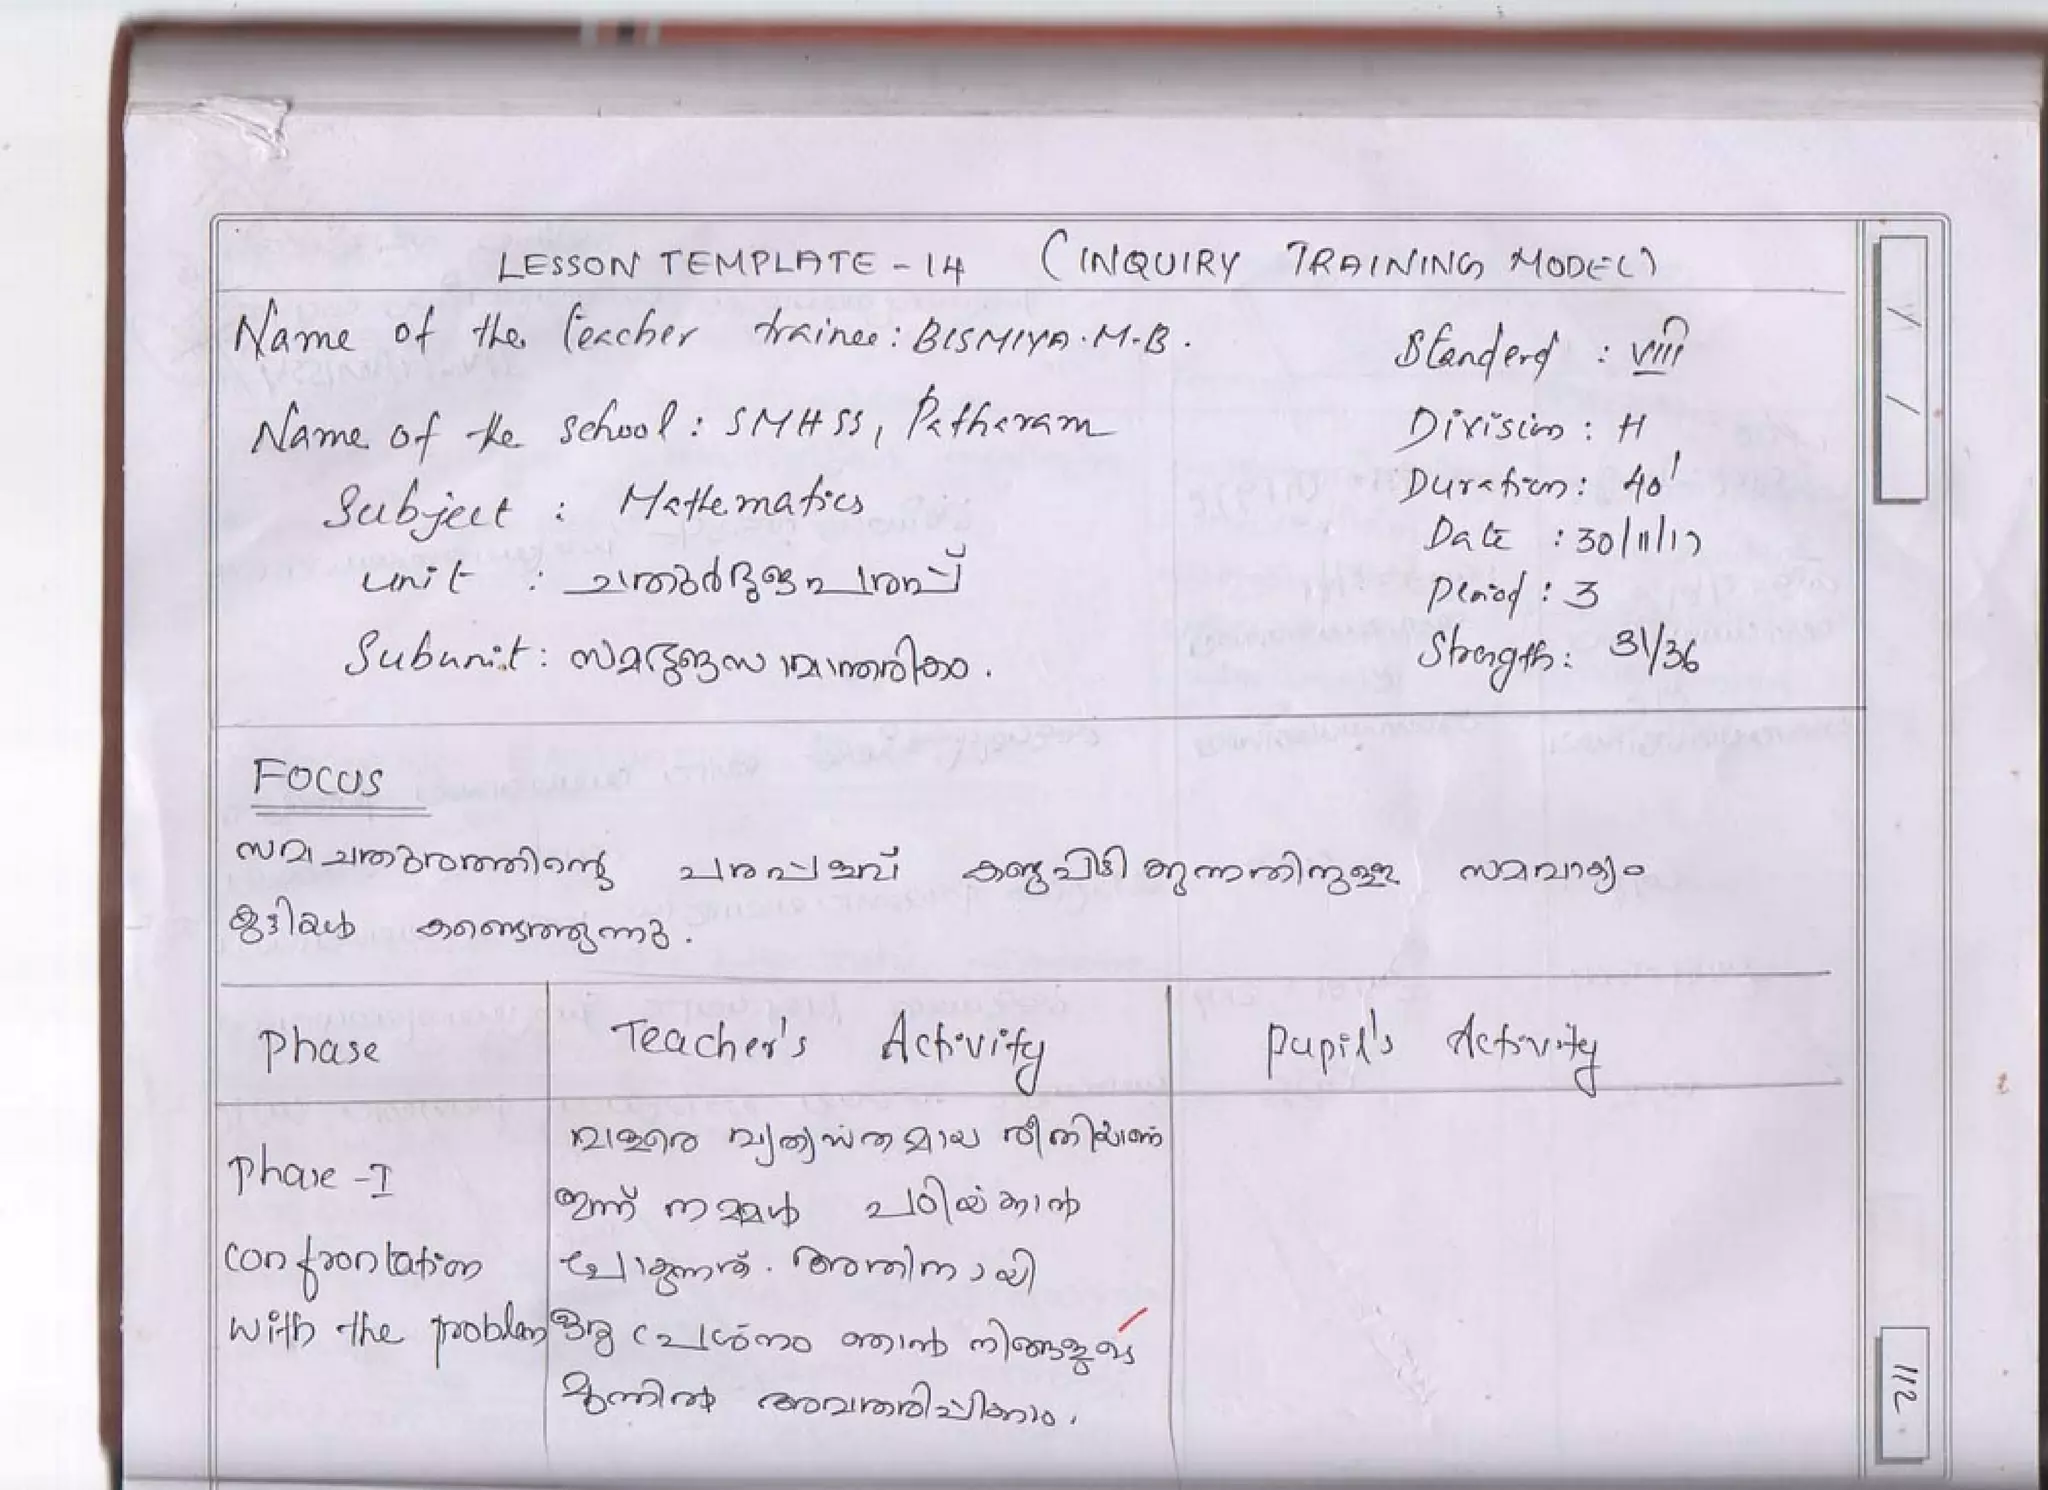 LESSON TEMPLATE - 14 (INQUIRY TRAINING MODEL)
Name of the teacher trainee : BISMIYA . M . B .
Standerd : VIII
Name of the school : SMHSS, Patharam
Division : H
Subject : Mathematics
Duration : 40'
Date : 30/11/17
Unit : ചതുർഭുജപരപ്പ്
Period : 3
Subunit : സമഭുജസാമാന്തരികം .
Strength : 31/36
FOCUS
സമചതുരത്തിന്റെ പരപ്പളവ് കണ്ടുപിടിക്കുന്നതിനുള്ള സമവാക്യം
കുട്ടികൾ കണ്ടെത്തുന്നു .
Phase Teacher's Activity Pupil's Activity
Phase - I
വളരെ വ്യത്യസ്തമായ രീതിയിലാണ്
ഇന്ന് നമ്മൾ പഠിയ്ക്കാൻ
Confrontation
പോകുന്നത് . അതിനായി
with the problem
ഒരു പ്രശ്നം ഞാൻ നിങ്ങളുടെ
മുന്നിൽ അവതരിപ്പിക്കാം .
112